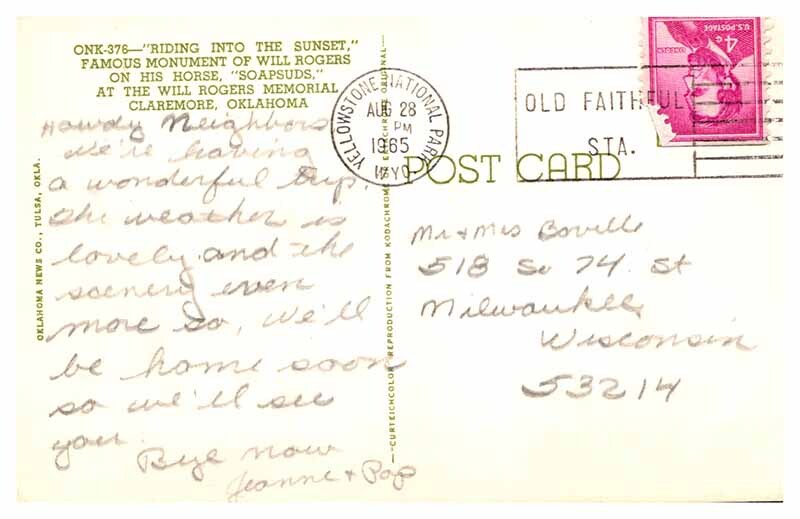 ONK-376—"RIDING INTO THE SUNSET,"
FAMOUS MONUMENT OF WILL ROGERS
ON HIS HORSE, "SOAPSUDS,"
AT THE WILL ROGERS MEMORIAL
CLAREMORE, OKLAHOMA
Howdy Neighbors
We're having
a wonderful trip.
The weather is
lovely and the
scenery even
more so, We'll
be home soon
so we'll see
you.
Bye now
Jeanne + Pop
OKLAHOMA NEWS CO., TULSA, OKLA.
—CURTEICHCOLOR REPRODUCTION FROM KODACHROME OR EKTACHROME ORIGINAL—
YELLOWSTONE NATIONAL PARK
AUG 28
PM
1965
WYO
OLD FAITHFUL
STA.
4¢
U.S. POSTAGE
LINCOLN
POST CARD
Mr + Mrs Boville
518 So 74 St
Milwaukee
Wisconsin
53214